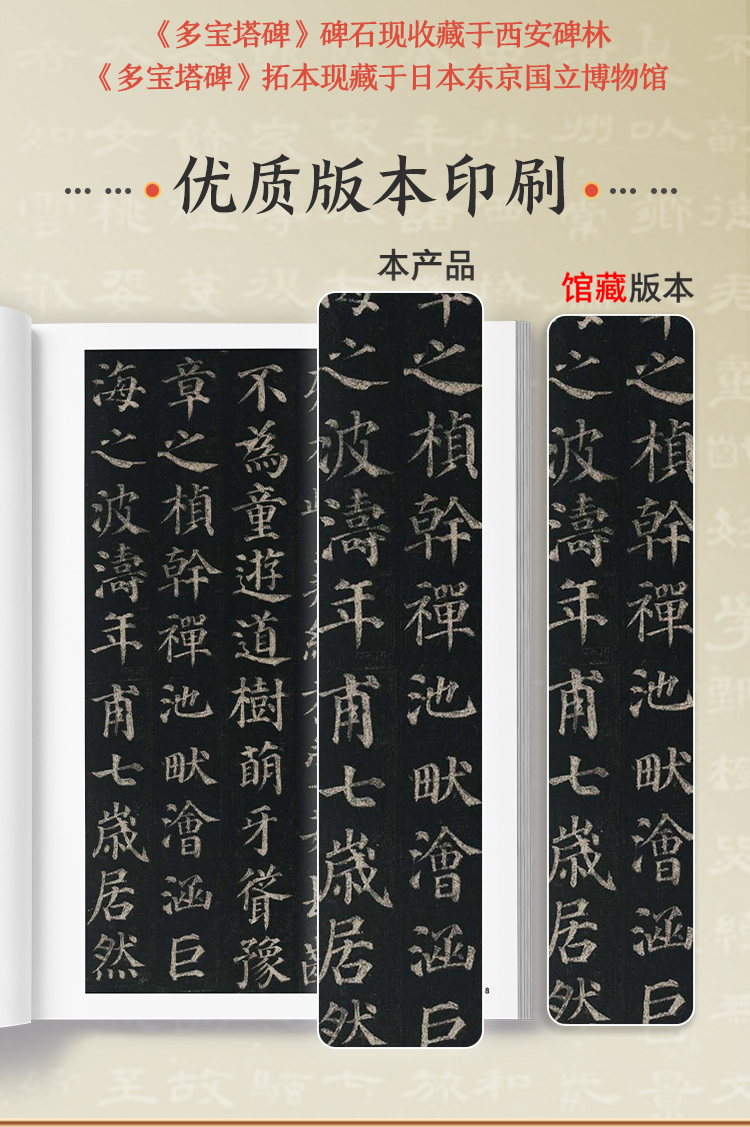 《多宝塔碑》碑石现收藏于西安碑林
《多宝塔碑》拓本现藏于日本东京国立博物馆
优质版本印刷
本产品
馆藏版本
不為童遊道樹萌牙聳豫
章之楨幹禪池畎澮涵巨
海之波濤年甫七歲居然
之楨幹禪池畎澮涵巨
之波濤年甫七歲居然
之楨幹禪池畎澮涵巨
之波濤年甫七歲居然
8